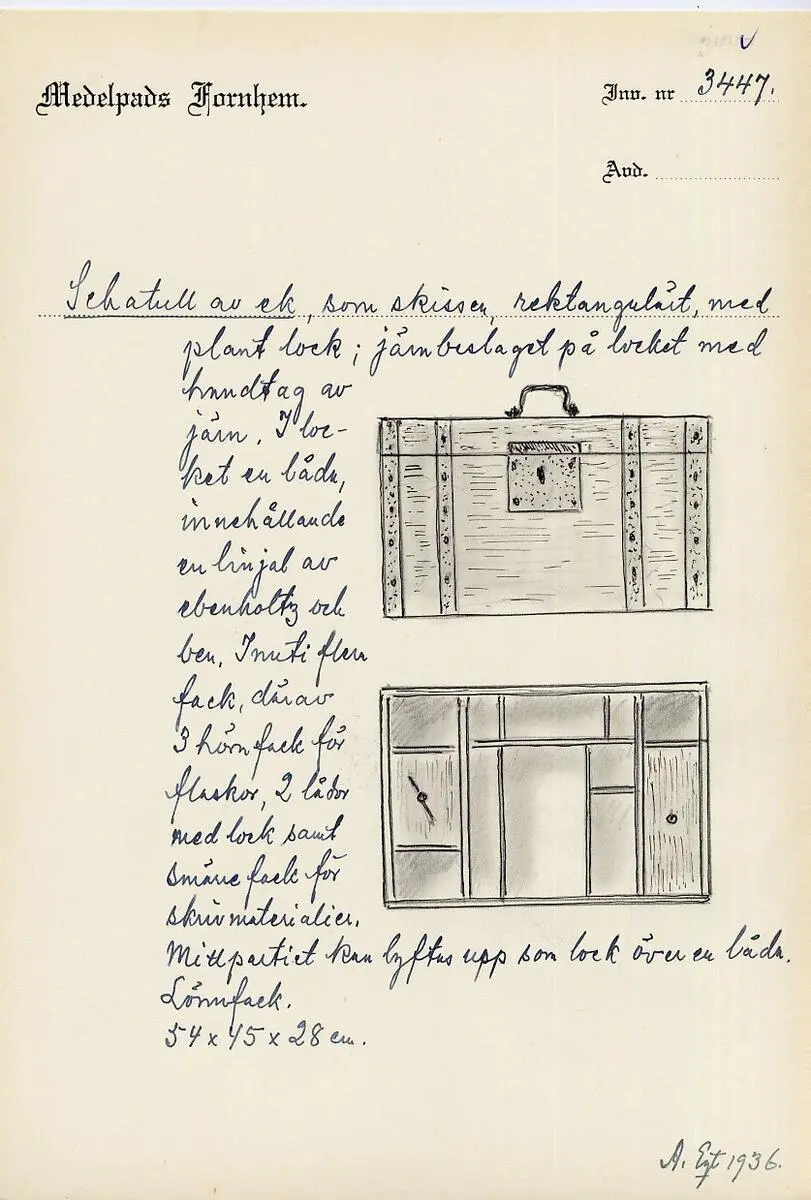 Medelpads Fornhem.
Inv. nr 3447.
Avd.
Schatull av ek, som skissen, rektangulärt, med
plant lock; järnbeslaget på locket med
handtag av
järn. I loc-
ket en låda,
innehållande
en linjal av
ebenholtz och
ben. Inuti flera
fack, därav
3 hörnfack för
flaskor, 2 lådor
med lock samt
smärre fack för
skrivmaterialier.
Mittpartiet kan lyftas upp som lock över en låda.
Lönnfack.
54 x 45 x 28 cm.
A. 1936.